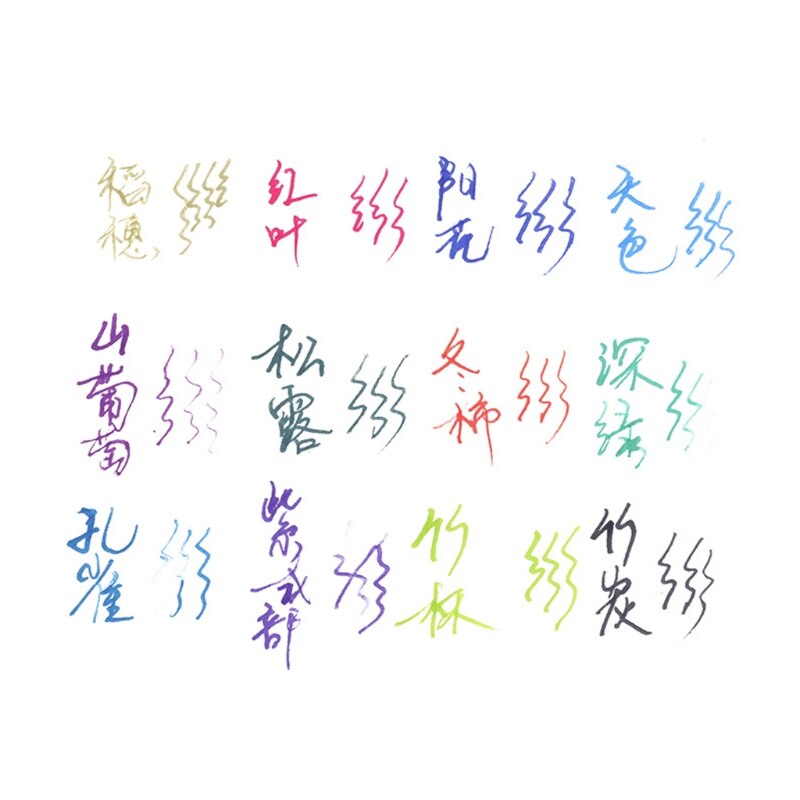 稻穗
红叶
阳花
天色
山葡萄
松露
冬柿
深绿
孔雀
紫式部
竹林
竹炭